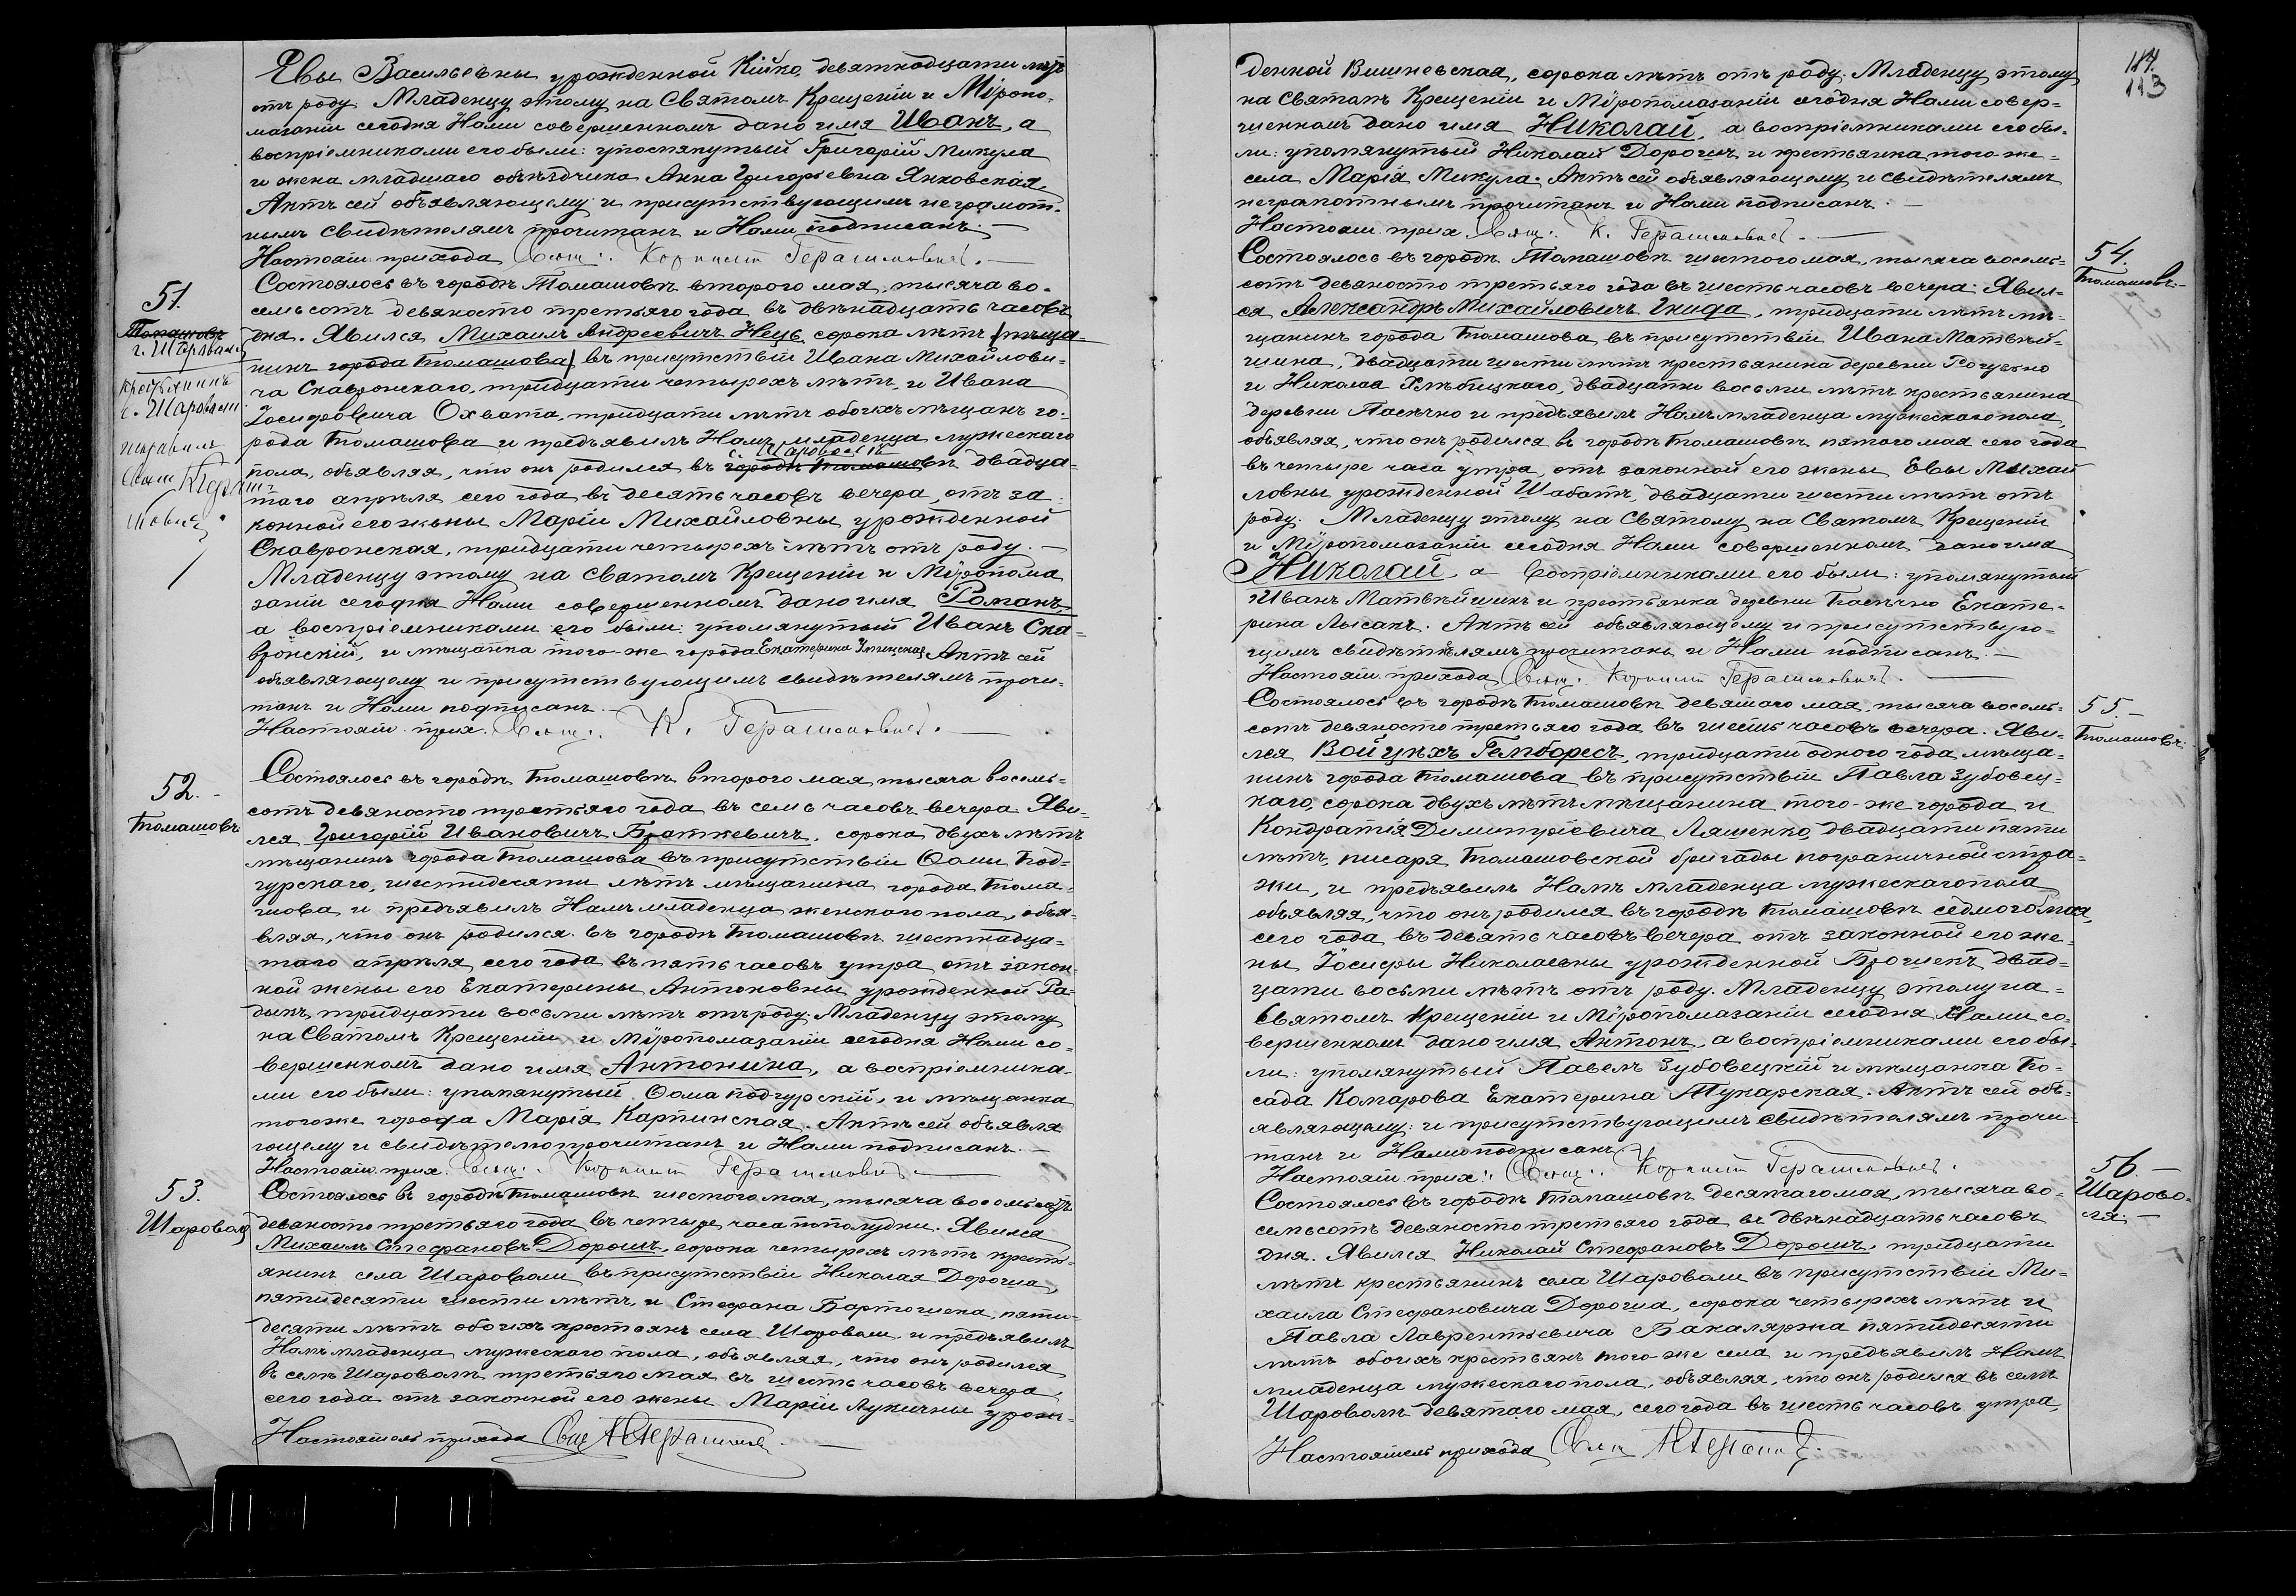 Евы Васильевны урожденной Кійко, девятнадцати лѣтъ
отъ роду. Младенцу этому на Святомъ Крещеніи и Мѵропо-
мазаніи сегодня Нами совершенномъ дано имя Иванъ, а
воспріемниками его были: упомянутый Григорій Микула
и жена младшаго объѣздчика Анна Григорьевна Янковская.
Актъ сей объявляющему и присутствующимъ неграмот-
нымъ свидѣтелямъ прочитанъ и Нами подписанъ. —
Настоят. прихода Свящ. Корнилій Герашковичъ. —
51.
Томашовъ
с. Шароволя
крестьянинъ
с. Шароволи
исправилъ
Свящ. К Гера
шкович
Состоялось въ городѣ Томашовѣ второго мая, тысяча во-
семьсотъ девяносто третьяго года въ двѣнадцать часовъ
дня. Явился Михаилъ Андреевичъ Нець, сорока лѣтъ (мѣща-
нинъ города Томашова) въ присутствіи Ивана Михайлови-
ча Скавронскаго, тридцати четырехъ лѣтъ, и Ивана
Іосифовича Охвата, тридцати лѣтъ обоихъ мѣщанъ го-
рода Томашова и предъявилъ Намъ младенца мужескаго
с. Шароволи
пола, объявляя, что онъ родился въ городѣ Томашовѣ двадца-
таго апрѣля сего года въ десять часовъ вечера, отъ за-
конной его жены Маріи Михайловны урожденной
Скавронская, тридцати четырехъ лѣтъ отъ роду. —
Младенцу этому на Святомъ Крещеніи и Мѵропома
заніи сегодня Нами совершенномъ дано имя Романъ,
а воспріемниками его были: упомянутый Иванъ Ска-
вронскій, и мѣщанка того-же города Екатерина Актъ сей
объявляющему и присутствующимъ свидѣтелямъ прочи-
танъ и Нами подписанъ. —
Настоят. прих. Свящ. К. Герашковичъ. —
52. -
Томашовъ
Состоялось въ городѣ Томашовѣ второго мая тысяча восемь-
сотъ девяносто третьяго года въ семь часовъ вечера. Яви-
лся Григорій Ивановичъ Браткевичъ, сорока двухъ лѣтъ
мѣщанинъ города Томашова въ присутствіи Ѳомы Под-
гурскаго, шестидесяти лѣтъ мѣщанина города Тома-
шова и предъявилъ Намъ младенца женскаго пола, объя-
вляя, что онъ родился въ городѣ Томашовѣ шестнадца-
таго апрѣля сего года въ пять часовъ утра отъ закон-
ной жены его Екатерины Антоновны урожденной Ра-
дыкъ, тридцати восьми лѣтъ отъ роду. Младенцу этому
на Святомъ Крещеніи и Мѵропомазаніи сегодня Нами со-
вершенномъ дано имя Антонина, а воспріемника-
ми его были: упомянутый Ѳома Подгурскій, и мѣщанка
тогоже города Марія Карпинская. Актъ сей объявля
ющему и свидѣтелю прочитанъ и Нами подписанъ. —
Настоят. прих. Свящ. Корнилій Герашковичъ. —
53.
Шароволя
Состоялось въ городѣ Томашовѣ шестого мая, тысяча восемьсотъ
девяносто третьяго года въ четыре часа пополудни. Явился
Михаилъ Стефановъ Дорошъ, сорока четырехъ лѣтъ крестъ-
янинъ села Шароволи въ присутствіи Николая Дороша,
пятидесяти шести лѣтъ, и Стефана Бартошека, пяти-
десяти лѣтъ обоихъ крестьянъ села Шароволи, и предъявилъ
Намъ младенца мужескаго пола, объявляя, что онъ родился
въ селѣ Шароволѣ третьяго мая въ шесть часовъ вечера,
сего года отъ законной его жены Маріи Лукичны урож-
Настоятель прихода Свящ К Герашкович —
114.
113
денной Вишневская, сорока лѣтъ отъ роду. Младенцу этому
на Святомъ Крещеніи и Мѵропомазаніи сегодня Нами совер-
шенномъ дано имя Николай, а воспріемниками его бы-
ли: упомянутый Николай Дорошъ и крестьянка того-же
села Марія Микула. Актъ сей объявляющему и свидѣтелямъ
неграмотнымъ прочитанъ и Нами подписанъ. —
Настоят. прих. Свящ. К. Герашковичъ. —
54.
Томашовъ.
Состоялось въ городѣ Томашовѣ шестого мая, тысяча восемь-
сотъ девяносто третьяго года въ шесть часовъ вечера. Явил-
ся Александръ Михайловичъ Гнида, тридцати лѣтъ мѣ-
щанинъ города Томашова въ присутствіи Ивана Матвѣй-
шина, двадцати шести лѣтъ крестьянина деревни Рогужно
и Николая Хмѣлицкаго, двадцати восьми лѣтъ крестьянина
деревни Пасѣчно и предъявилъ Намъ младенца мужескаго пола,
объявляя, что онъ родился въ городѣ Томашовѣ пятого мая сего года
въ четыре часа утра, отъ законной его жены Евы Михай
ловны урожденной Шабатъ, двадцати шести лѣтъ отъ
роду. Младенцу этому на Святому на Святомъ Крещеніи
и Мѵропомазаніи сегодня Нами совершенномъ дано имя
Николай, а воспріемниками его были: упомянутый
Иванъ Матвѣйшинъ и крестьянка деревни Пасѣчно Екате-
рина Лысакъ. Актъ сей объявляющему и присутствую-
щимъ свидѣтелямъ прочитанъ и Нами подписанъ. —
Настоят. прихода Свящ. Корнилій Герашковичъ. —
55. -
Томашовъ.
Состоялось въ городѣ Томашовѣ девятаго мая, тысяча восемь-
сотъ девяносто третьяго года въ шесть часовъ вечера. Яви-
лся Войцѣхъ Гемборесъ, тридцати одного года мѣща-
нинъ города Томашова въ присутствіи Павла Зубовец-
каго, сорока двухъ лѣтъ мѣщанина того-же города и
Кондратія Димитріевича Ляшенко, двадцати пяти
лѣтъ, писаря Томашовской бригады пограничной стра-
жи, и предъявилъ Намъ младенца мужескаго пола
объявляя, что онъ родился въ городѣ Томашовѣ седмого мая,
сего года въ десять часовъ вечера отъ законной его же-
ны Іосифы Николаевны урожденной Брошекъ двад-
цати восьми лѣтъ отъ роду. Младенцу этому на-
Святомъ Крещеніи и Мѵропомазаніи сегодня Нами со-
вершенномъ дано имя Антонъ, а воспріемниками его бы-
ли: упомянутый Павелъ Зубовецкій и мѣщанка По-
сада Комарова Екатерина Тукарская. Актъ сей объ-
являющему: и присутствующимъ свидѣтелямъ прочи-
танъ и Нами подписанъ.
Настоят. прих. Свящ. Корнилій Герашковичъ.
56. -
Шарово-
ля. -
Состоялось въ городѣ Томашовѣ десятаго мая, тысяча во-
семьсотъ девяносто третьяго года въ двѣнадцать часовъ
дня. Явился Николай Стефановъ Дорошъ, тридцати
лѣтъ крестьянинъ села Шароволи въ присутствіи Ми-
хаила Стефановича Дороша, сорока четырехъ лѣтъ и
Павла Лаврентьевича Бакаляржа пятидесяти
лѣтъ обоихъ крестьянъ того-же села и предъявилъ Намъ
младенца мужескаго пола, объявляя, что онъ родился въ селѣ
Шароволѣ девятаго мая, сего года въ шесть часовъ утра,
Настоятель прихода Свящ К Герашкович.